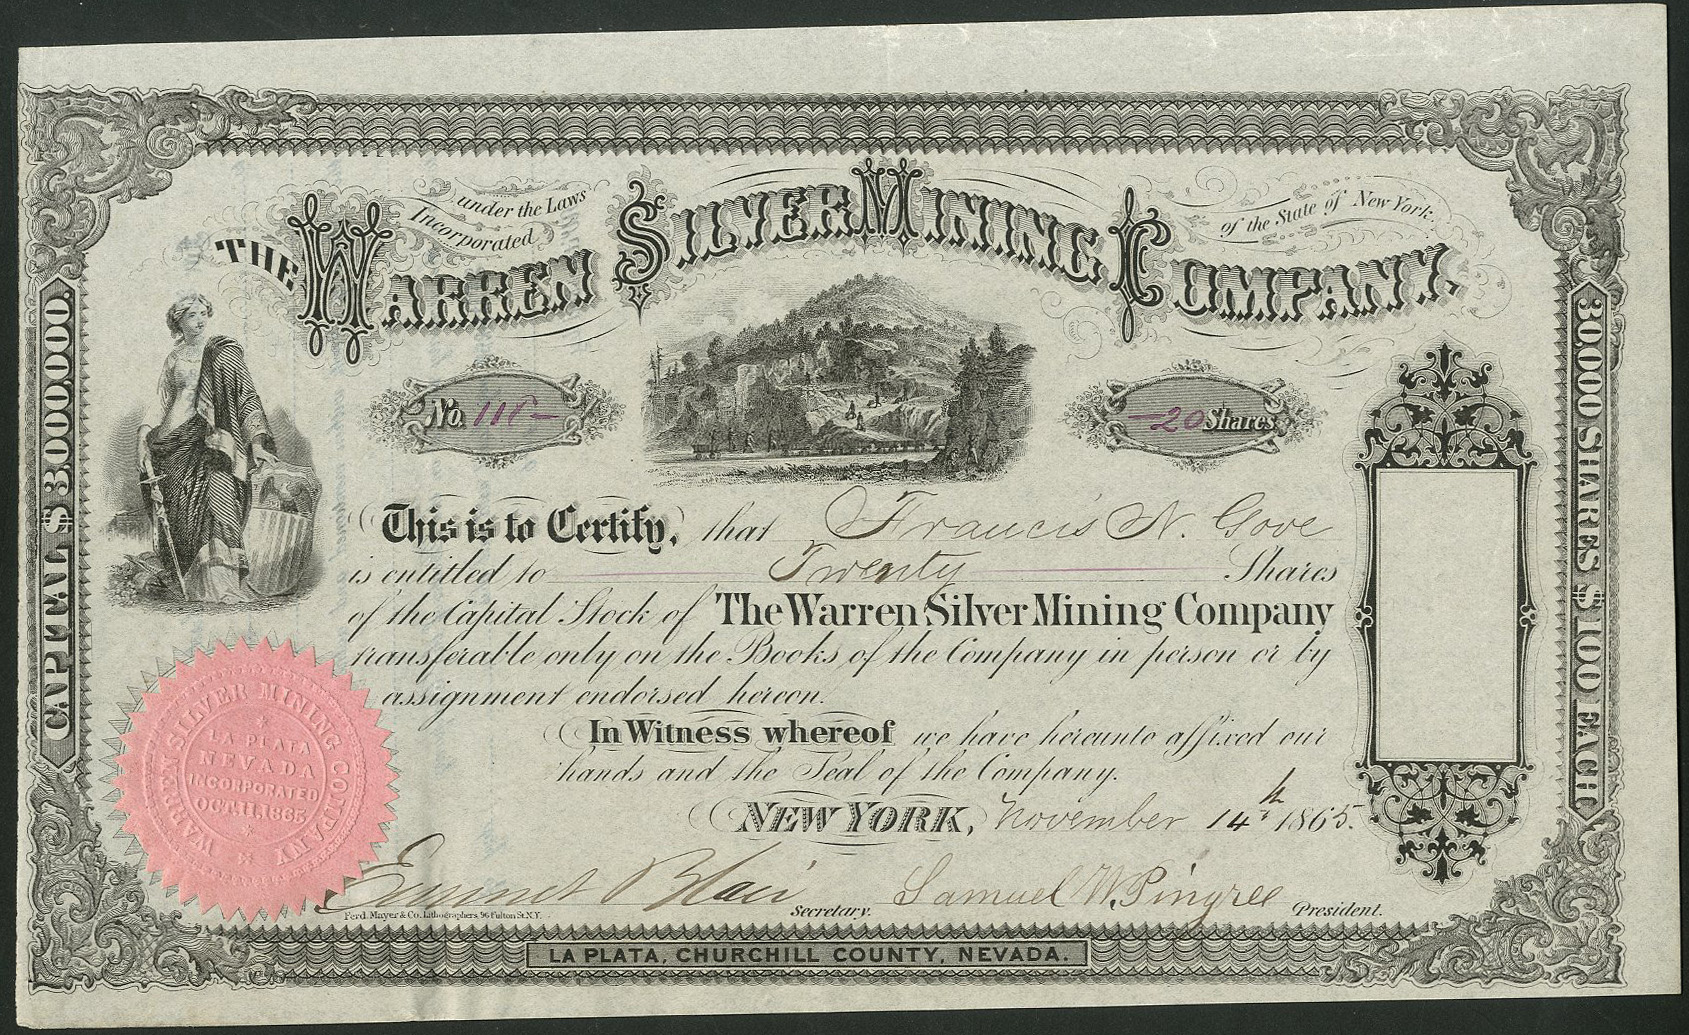 Incorporated under the Laws of the State of New York.
THE WARREN SILVER MINING COMPANY.
No. 111-
-20 Shares
CAPITAL $3,000,000.
30,000 SHARES $100 EACH
This is to Certify, that Francis N. Gove
is entitled to Twenty Shares
of the Capital Stock of The Warren Silver Mining Company
transferable only on the Books of the Company in person or by
assignment endorsed hereon.
In Witness whereof we have hereunto affixed our
hands and the Seal of the Company.
NEW YORK, November 14th 1865.
WARREN SILVER MINING COMPANY
LA PLATA
NEVADA
INCORPORATED
OCT. 11. 1865
Emmet Blair Secretary. Samuel W. Pingree President.
Ferd. Mayer & Co. Lithographers, 96 Fulton St. N.Y.
LA PLATA, CHURCHILL COUNTY, NEVADA.